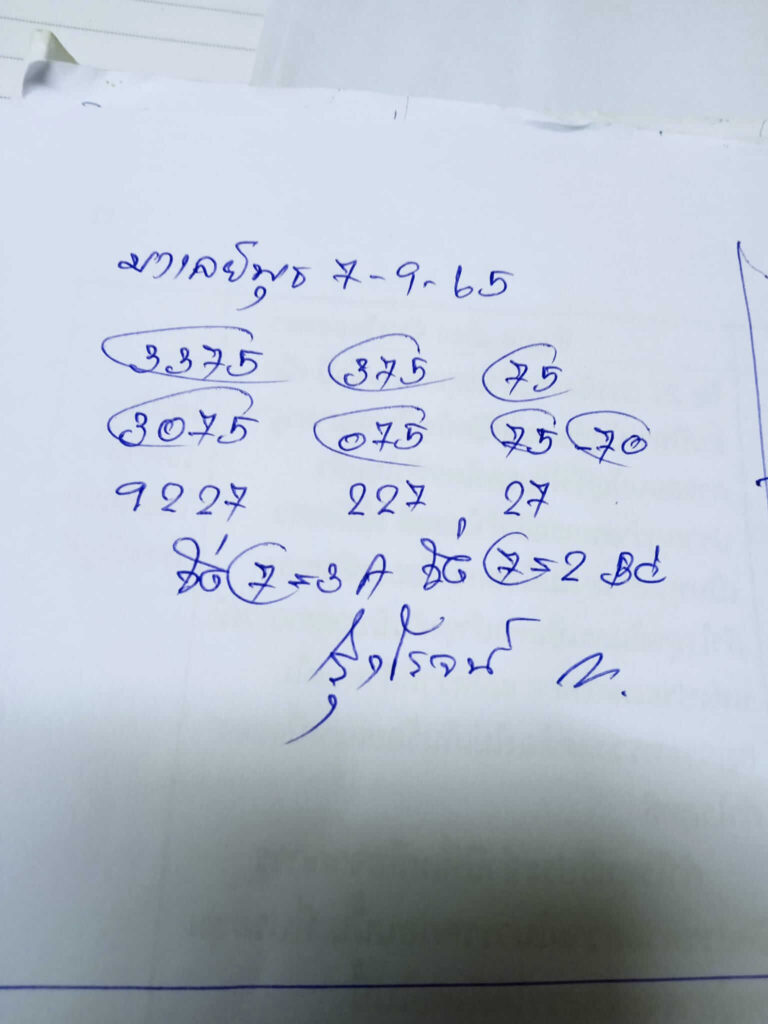 มาเลย์พุธ 7-9-65
3375 375 75
3075 075 75-70
9227 227 27
7=3 A 7=2
รุ่งโรจน์